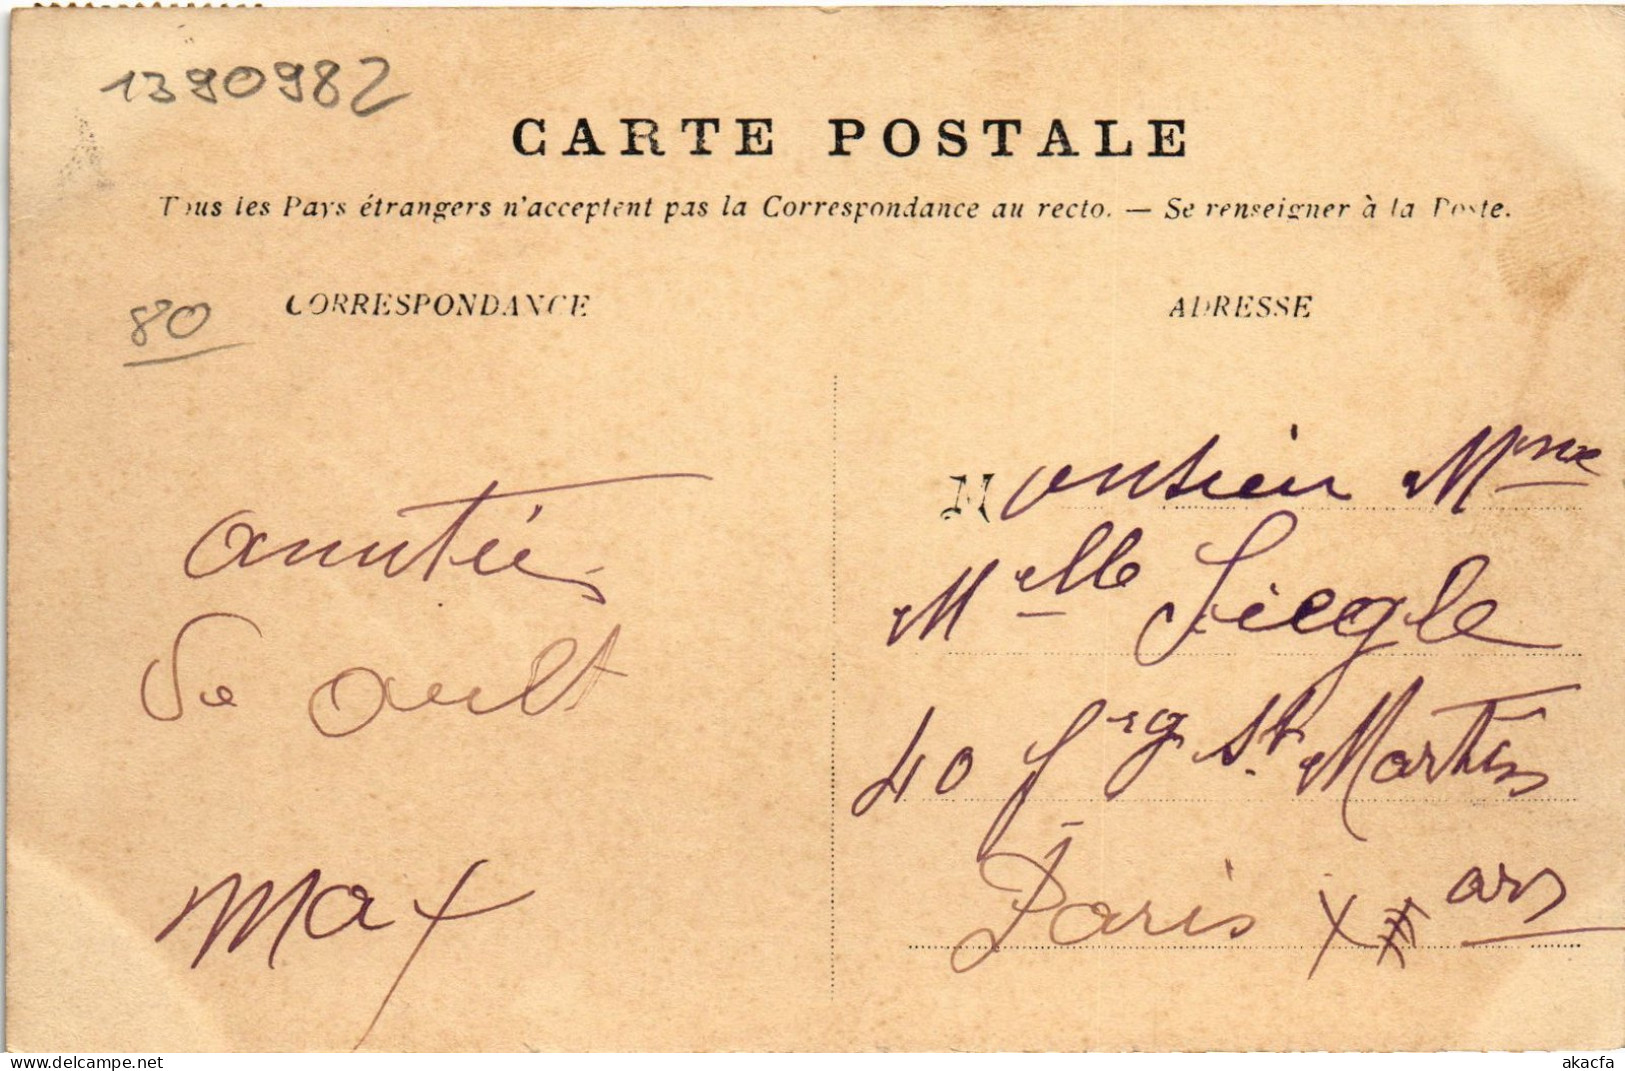 1390982
CARTE POSTALE
Tous les Pays étrangers n'acceptent pas la Correspondance au recto. — Se renseigner à la Poste.
80
CORRESPONDANCE
ADRESSE
amitiés
De Ault
Max
Monsieur Mme
Melle Siegle
40 frg St. Martin
Paris X ars
www.delcampe.net
akacfa